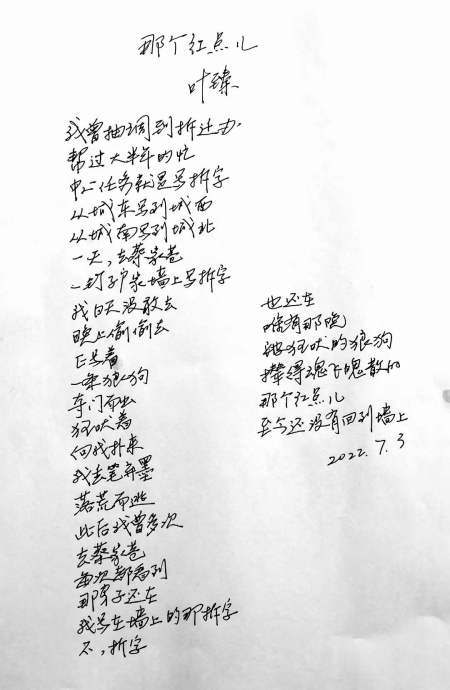 那个红点儿
叶臻
我曾抽调到拆迁办
帮过大半年的忙
中心任务就是写拆字
从城东写到城西
从城南写到城北
一天,去蔡家巷
一钉子户家墙上写拆字
我白天没敢去
晚上偷偷去
正写着
一条狼狗
夺门而出
狂吠着
向我扑来
我丢笔弃墨
落荒而逃
此后我曾多次
去蔡家巷
每次都看到
那房子还在
我写在墙上的那拆字
不,折字
也还在
唯有那晚
被狂吠的狼狗
撵得魂飞魄散的
那个红点儿
至今还没有回到墙上
2022.7.3